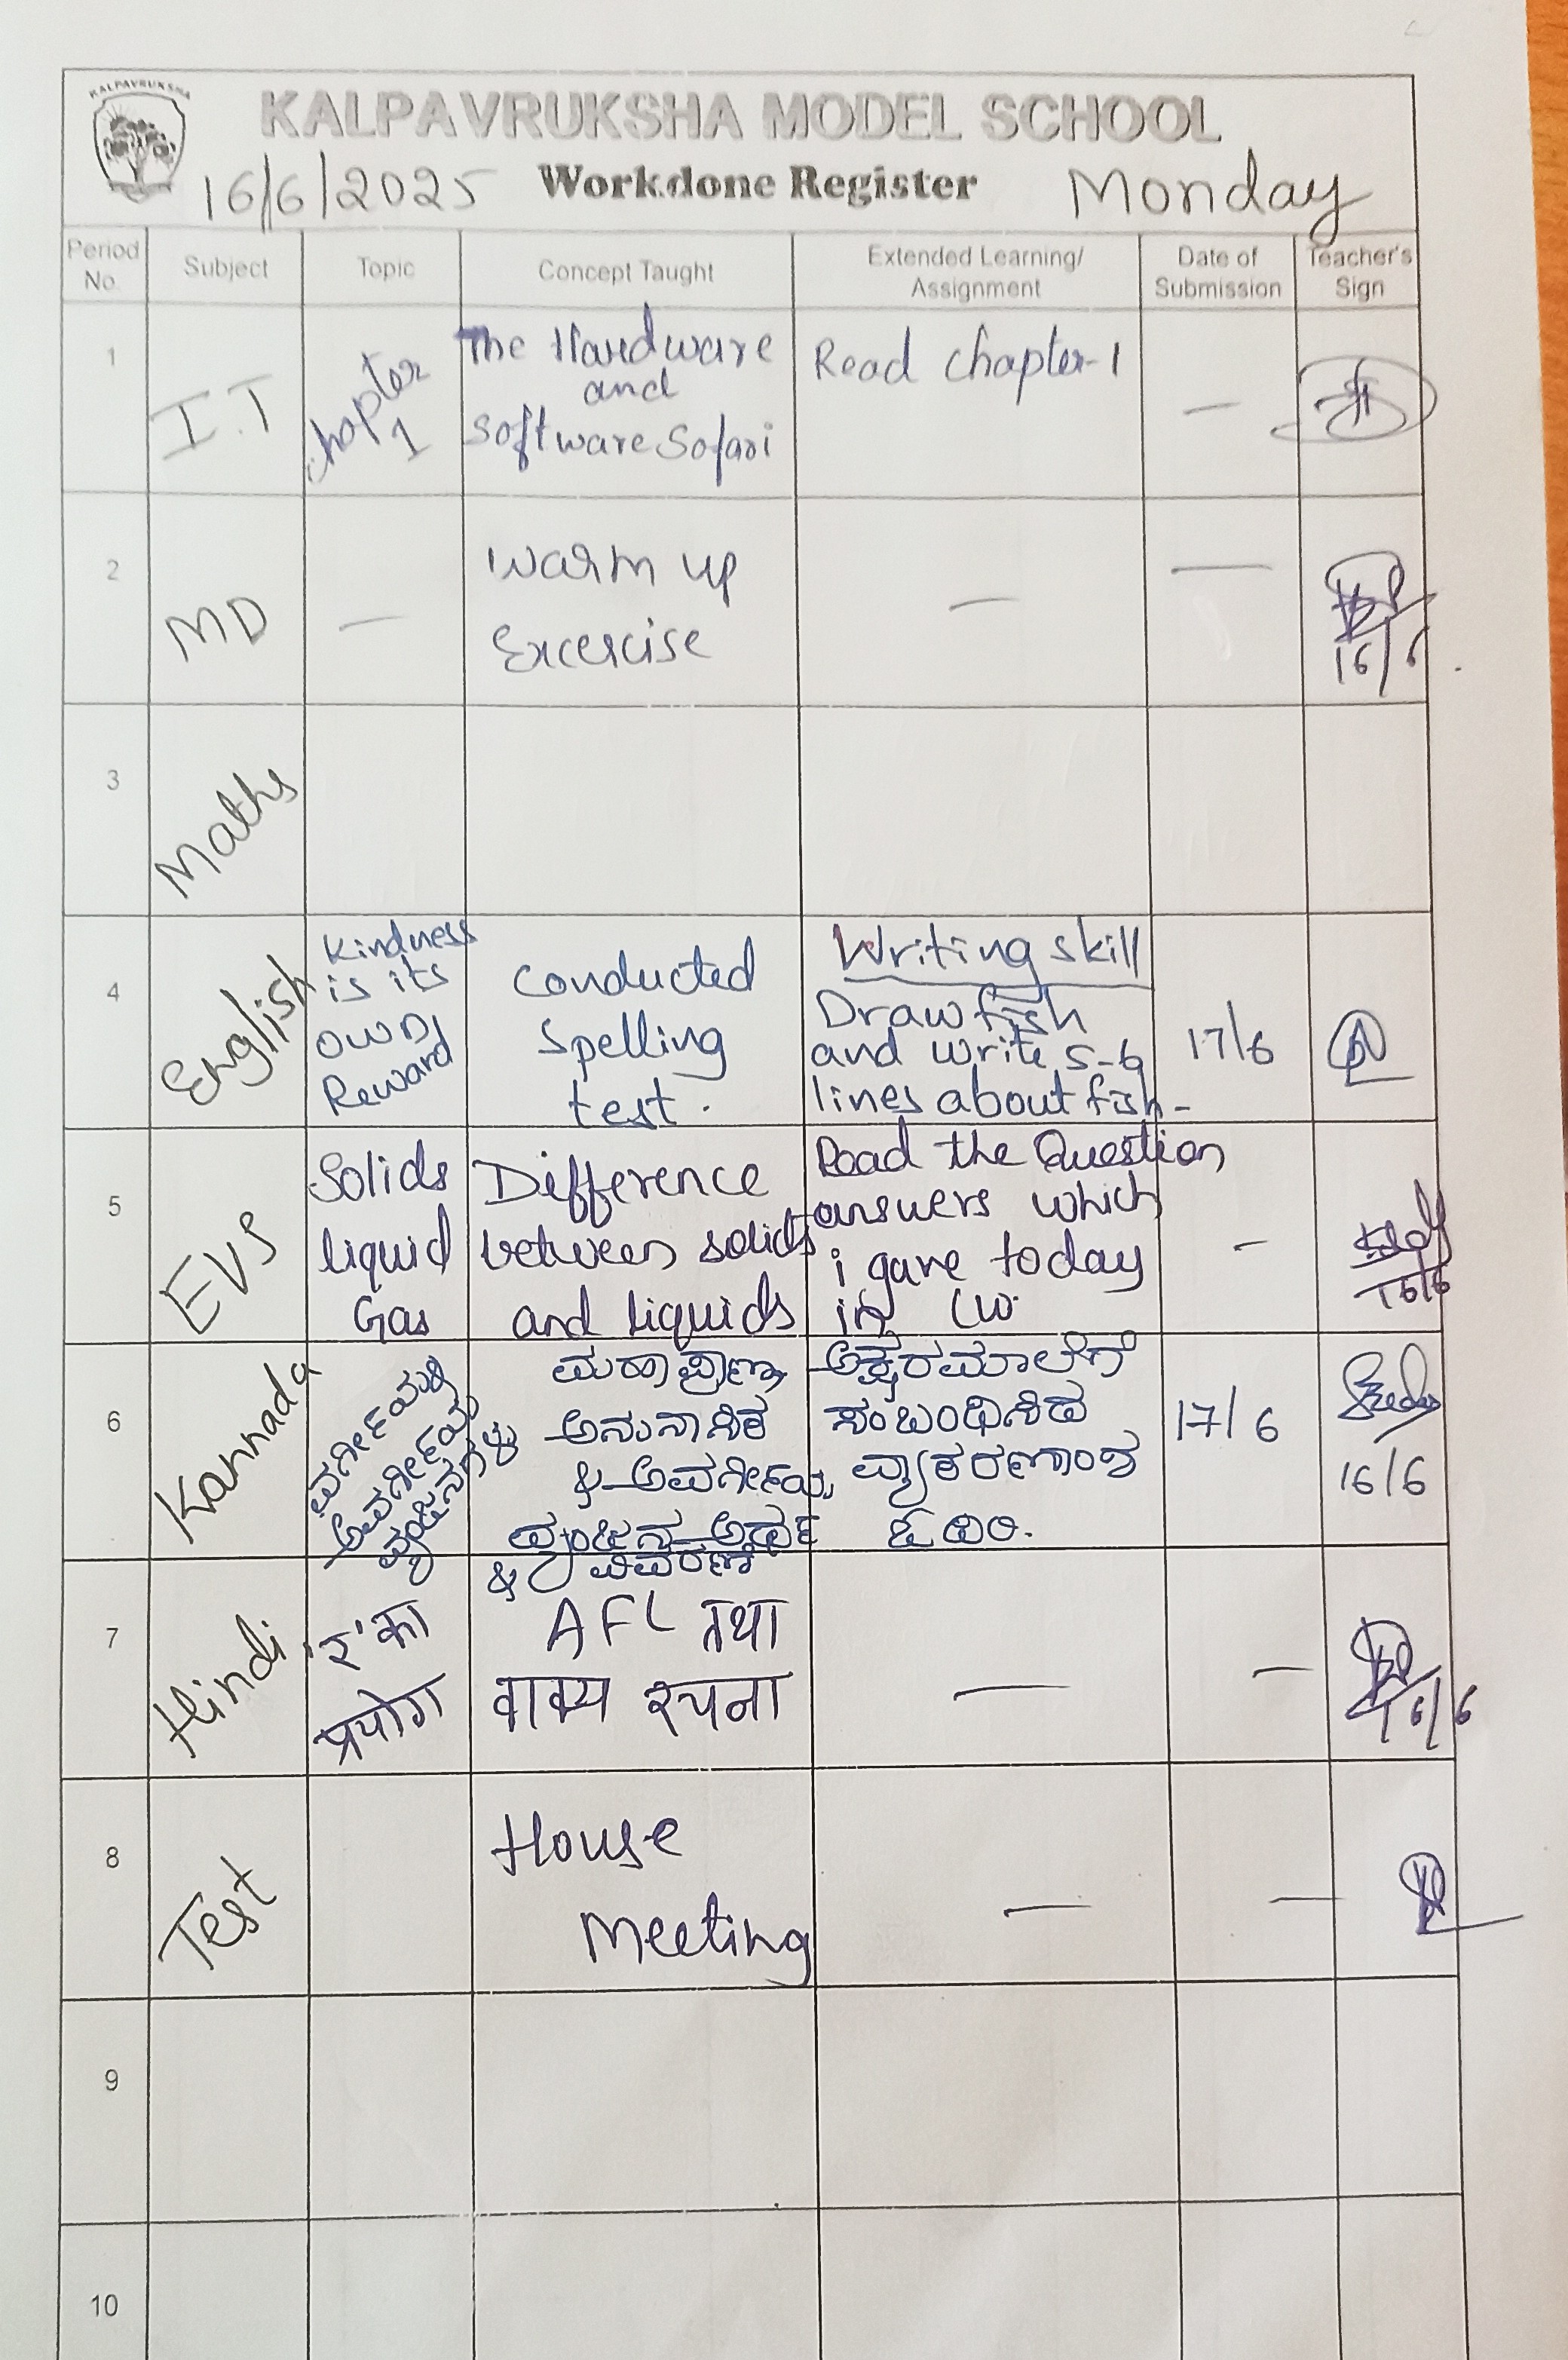 KALPAVRUKSHA
KALPAVRUKSHA MODEL SCHOOL
16/6/2025 Workdone Register Monday
Period No. Subject Topic Concept Taught Extended Learning/ Assignment Date of Submission Teacher's Sign
1 I.T Chapter 1
The Hardware
and
Software Safari
Read chapter-1
—
2 MD —
Warm up
Excercise
— —
16/6
3 Maths
4 English
Kindness
is its
own
Reward
Conducted
Spelling
test.
Writing skill
Draw fish
and write 5-6
lines about fish-
17/6
5 EVS
Solids
liquid
Gas
Difference
between solids
and liquids
Read the Question
answers which
i gave today
in CW.
-
16/6
6 Kannada
ವರ್ಗೀಯ
ಅವರ್ಗೀಯ
ವ್ಯಂಜನಗಳು
ಮಹಾಪ್ರಾಣ,
ಅನುನಾಸಿಕ
& ಅವರ್ಗೀಯ
ವ್ಯಂಜನ ಅರ್ಥ
& ವಿವರಣೆ
ಅಕ್ಷರಮಾಲೆಗೆ
ಸಂಬಂಧಿಸಿದ
ವ್ಯಾಕರಣಾಂಶ
ಓದಿರಿ.
17/6
16/6
7 Hindi
'र' का
प्रयोग
AFL तथा
वाक्य रचना
— —
16/6
8 Test
House
Meeting
— —
9
10